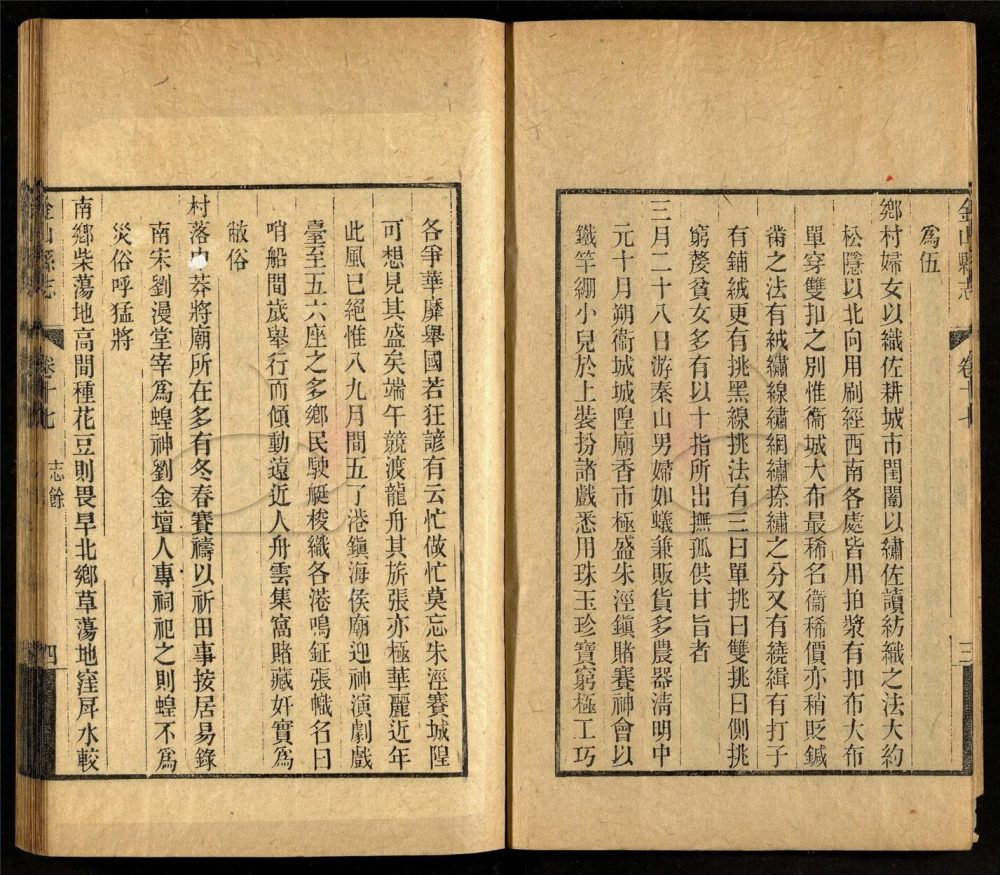 金山縣志
卷十七
三
爲伍
鄉村婦女以織佐耕城市閨闥以繡佐讀紡織之法大約
松隱以北向用刷經西南各處皆用拍漿有扣布大布
單穿雙扣之別惟衞城大布最稀名衞稀價亦稍貶鍼
黹之法有絨繡線繡網繡捺繡之分又有繞緝有打子
有鋪絨更有挑黑線挑法有三曰單挑曰雙挑曰側挑
窮嫠貧女多有以十指所出撫孤供甘旨者
三月二十八日游秦山男婦如蟻兼販貨多農器清明中
元十月朔衞城城隍廟香市極盛朱涇鎮賭賽神會以
鐵竿綳小兒於上裝扮諸戲悉用珠玉珍寶窮極工巧
各爭華靡舉國若狂諺有云忙做忙莫忘朱涇賽城隍
可想見其盛矣端午競渡龍舟其旂張亦極華麗近年
此風已絕惟八九月間五了港鎮海侯廟迎神演劇戲
臺至五六座之多鄉民駛艇梭織各港鳴鉦張幟名曰
哨船間歲舉行而傾動遠近人舟雲集窩賭藏奸實爲
敝俗
村落中莽將廟所在多有冬春賽禱以祈田事按居易錄
南宋劉漫堂宰爲蝗神劉金壇人專祠祀之則蝗不爲
災俗呼猛將
南鄉柴蕩地高間種花豆則畏旱北鄉草蕩地窪戽水較
金山縣志
卷十七
志餘
四